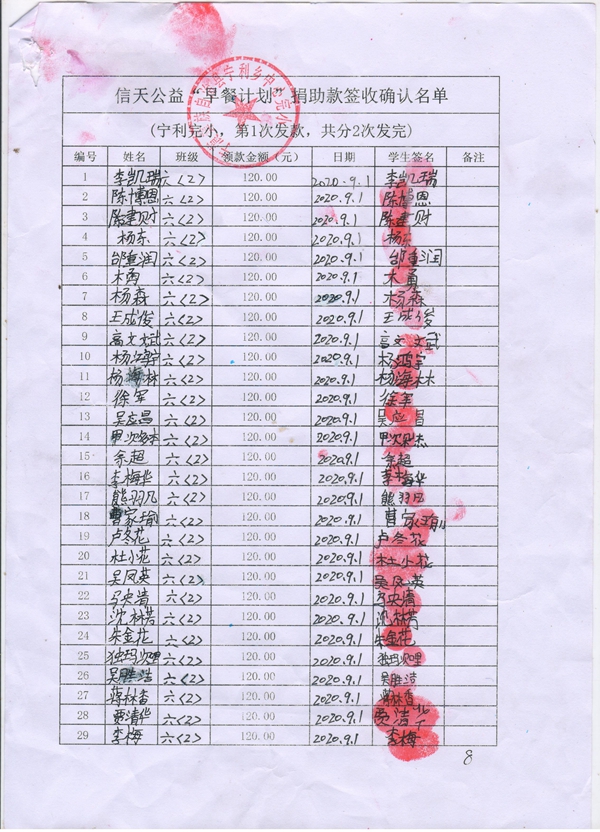 信天公益“早餐计划”捐助款签收确认名单
(宁利完小，第1次发款，共分2次发完)
编号 姓名 班级 领款金额（元） 日期 学生签名 备注
1 李凯瑞 六<2> 120.00 2020.9.1 李凯瑞
2 陈博恩 六<2> 120.00 2020.9.1 陈博恩
3 陈建财 六<2> 120.00 2020.9.1 陈建财
4 杨东 六<2> 120.00 2020.9.1 杨东
5 邰重润 六<2> 120.00 2020.9.1 邰重润
6 木勇 六<2> 120.00 2020.9.1 木勇
7 杨森 六<2> 120.00 2020.9.1 杨森
8 王成俊 六<2> 120.00 2020.9.1 王成俊
9 高文斌 六<2> 120.00 2020.9.1 高文斌
10 杨鸿宇 六<2> 120.00 2020.9.1 杨鸿宇
11 杨海林 六<2> 120.00 2020.9.1 杨海林
12 徐军 六<2> 120.00 2020.9.1 徐军
13 吴应昌 六<2> 120.00 2020.9.1 吴应昌
14 六<2> 120.00 2020.9.1
15 余超 六<2> 120.00 2020.9.1 余超
16 李梅华 六<2> 120.00 2020.9.1 李梅华
17 熊羽凡 六<2> 120.00 2020.9.1 熊羽凡
18 曹家瑜 六<2> 120.00 2020.9.1 曹家瑜
19 卢冬花 六<2> 120.00 2020.9.1 卢冬花
20 杜小花 六<2> 120.00 2020.9.1 杜小花
21 吴凤英 六<2> 120.00 2020.9.1 吴凤英
22 马央清 六<2> 120.00 2020.9.1 马央清
23 沈林芳 六<2> 120.00 2020.9.1 沈林芳
24 朱金花 六<2> 120.00 2020.9.1 朱金花
25 独玛次里 六<2> 120.00 2020.9.1 独玛次里
26 吴胜洁 六<2> 120.00 2020.9.1 吴胜洁
27 蒋林香 六<2> 120.00 2020.9.1 蒋林香
28 贾清华 六<2> 120.00 2020.9.1 贾清华
29 李梅 六<2> 120.00 2020.9.1 李梅
8